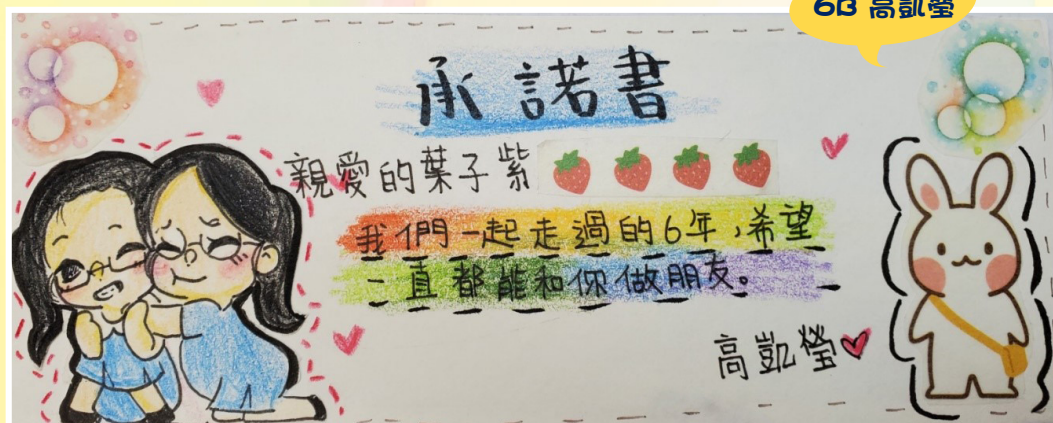 6B 高凱瑩
承諾書
親愛的葉子紫
我們一起走過的6年，希望
一直都能和你做朋友。
高凱瑩